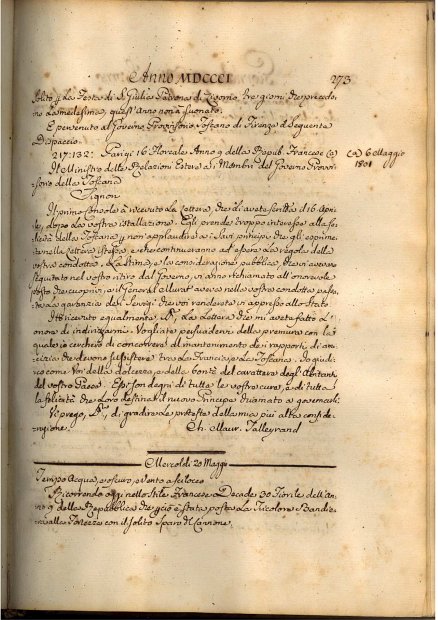 Anno MDCCCI 273
solito p la Festa di S. Giulia Padrona di Livorno, tre giorni che precedo-
no la medesima, quest'anno non à suonato.
E' pervenuto al Governo Provvisorio Toscano di Firenze il seguente
Dispaccio.
217:132: Parigi 16 Floreale Anno 9 della Repub. Francese (a) (a) 6 Maggio
1801
Il Ministro delle Relazioni Estere a i Membri del Governo Provvi-
sorio della Toscana
Signori
Il primo Console à ricevuta la Lettera, che gli avete scritta di 16 Apri-
le, dopo la vostra istallazione. Egli prende troppo interesse alla fe-
licità della Toscana p non applaudire a i savi principi che gli esprime-
te nella Lettera istessa, e che continueranno ad essere la regola della
vostra condotta. La stima, e la considerazione pubblica, che vi aveva
seguitato nel vostro ritiro dal Governo, vi anno richiamato all'onorevole
posto che cuoprite, e il General Murat aveva nella vostra condotta passa-
ta la garanzia dei Servigi che voi renderete in appresso allo Stato.
Hò ricevuto egualmente la Lettera che mi avete fatto l'o-
nore di indirizzarmi. Vogliate persuadervi della premura con la
quale io cercherò di concorrere al mantenimento de i rapporti di ami-
cizia che devono sussistere tra la Francia, e la Toscana. Io giudi-
co come Voi della dolcezza, e della bontà del carattere degl'Abitanti
del vostro Paese. Essi son degni di tutte le vostre cure, e di tutta
la felicità che loro destina il nuovo Principe chiamato a governarli.
Vi prego, di gradire le proteste della mia più alta conside-
razione. Ch. Maur. Talleyrand
Mercoldì 20 Maggio
Tempo Acqua, e oscuro, e vento a scilocco
Ricorrendo oggi nello Stile Francese la Decade 30 Fiorile dell'An-
no 9 della Repubblica che però è stata posta la Tricolore Bandie-
ra alle Fortezze con il solito sparo di Cannone.